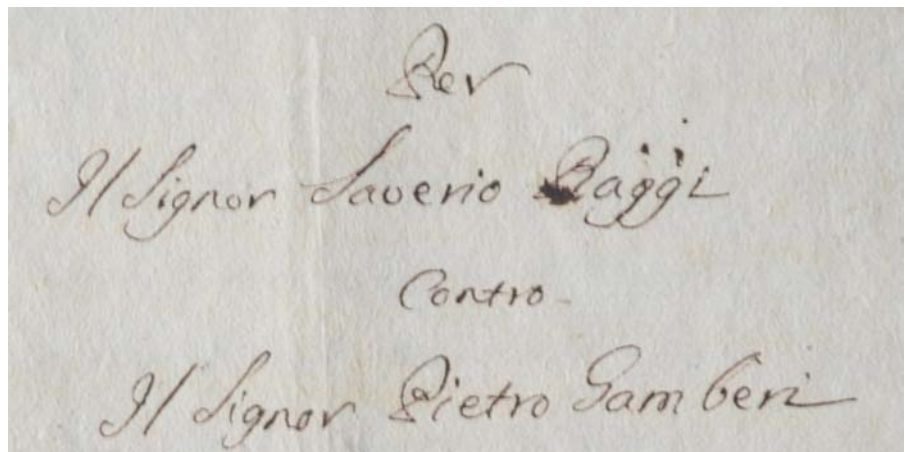 Per
Il Signor Saverio Raggi
Contro
Il Signor Pietro Gamberi